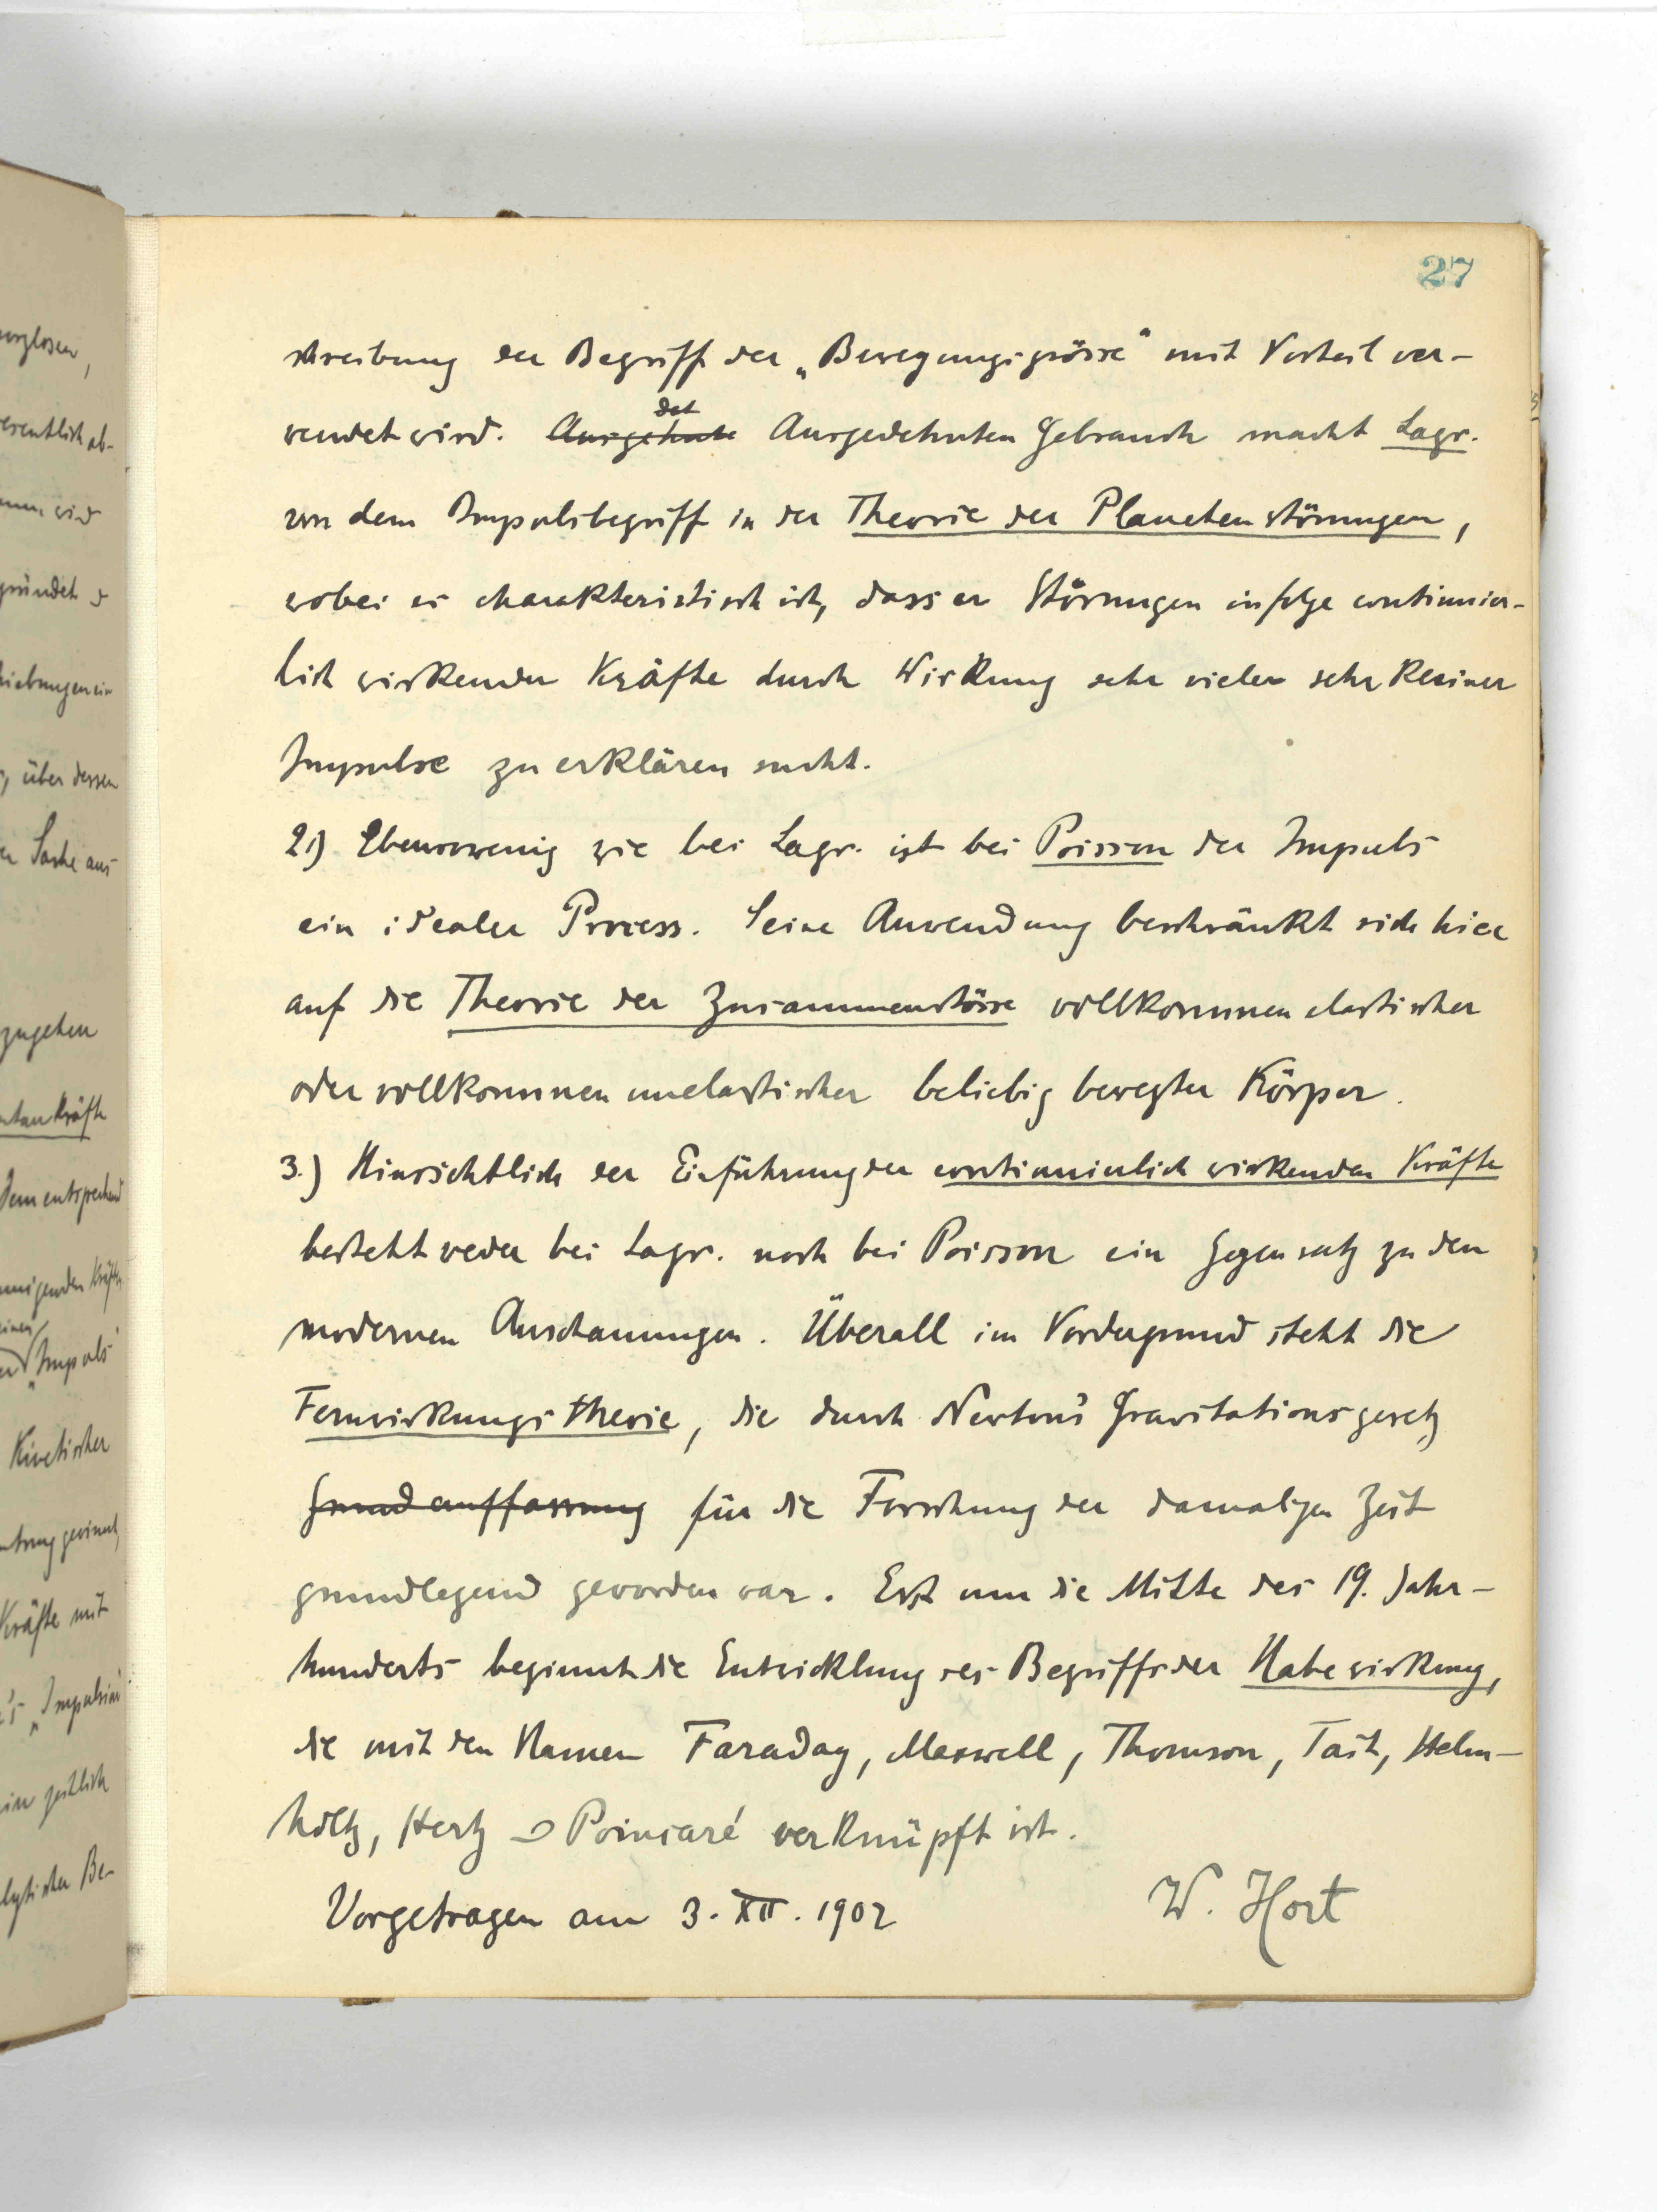 27
schreibung der Begriff der „Bewegungsgrösse" mit Vorteil ver-
wendet wird. Ausgehnte det Ausgedehnten Gebrauch macht Lagr.
von dem Impulsbegriff in der Theorie der Planetenstörungen,
wobei es charakteristisch ist, dass er Störungen infolge continuier-
lich wirkender Kräfte durch Wirkung sehr vieler sehr kleiner
Impulse zu erklären sucht.
2.) Ebensowenig wie bei Lagr. ist bei Poisson der Impuls
ein idealer Process. Seine Anwendung beschränkt sich hier
auf die Theorie der Zusammenstösse vollkommen elastischer
oder vollkommen unelastischer beliebig bewegter Körper.
3.) Hinsichtlich der Einführung der continuierlich wirkenden Kräfte
besteht weder bei Lagr. noch bei Poisson ein Gegensatz zu den
modernen Anschauungen. Überall im Vordergrund steht die
Fernwirkungstheorie, die durch Newton's Gravitationsgesetz
Grundauffassung für die Forschung der damaligen Zeit
grundlegend geworden war. Erst um die Mitte des 19. Jahr-
hunderts beginnt die Entwicklung des Begriffs der Nahewirkung,
die mit den Namen Faraday, Maxwell, Thomson, Tait, Helm-
holtz, Hertz & Poincaré verknüpft ist.
Vorgetragen am 3. XII. 1902
W. Hort